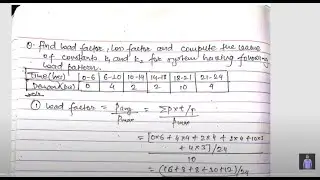 Q. find load factor, loss factor and compute the values
of constants k₁ and k₂ for system having following
load pattern.
Time (hrs) 0-6 6-10 10-14 14-18 18-21 21-24
Demand (kW) 0 4 2 2 10 4
① load factor = Pavg / Pmax = Σp×t/T / Pmax
= [0×6 + 4×4 + 2×4 + 2×4 + 10×3
+ 4×3]/24
10
= (16+8+8+30+12)/24